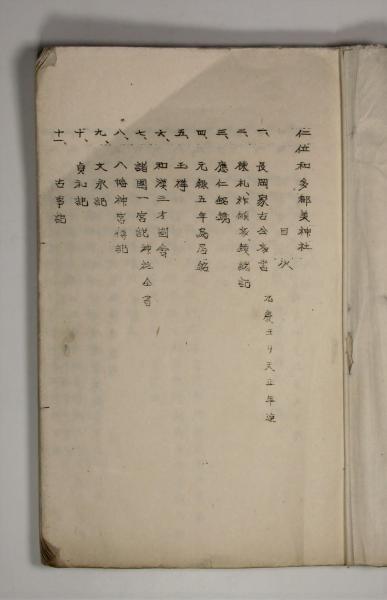 仁位和多都美神社
目次
一、長岡家古文書 元慶ヨリ天正年迄
二、棟札、
三、應仁鉾銘
四、元録五年鳥居銘
五、玉禅
六、和漢三才圖會
七、諸國一宮記神社全書
八、八幡神宮傳記
九、文永記
十、貞和記
十一、古事記